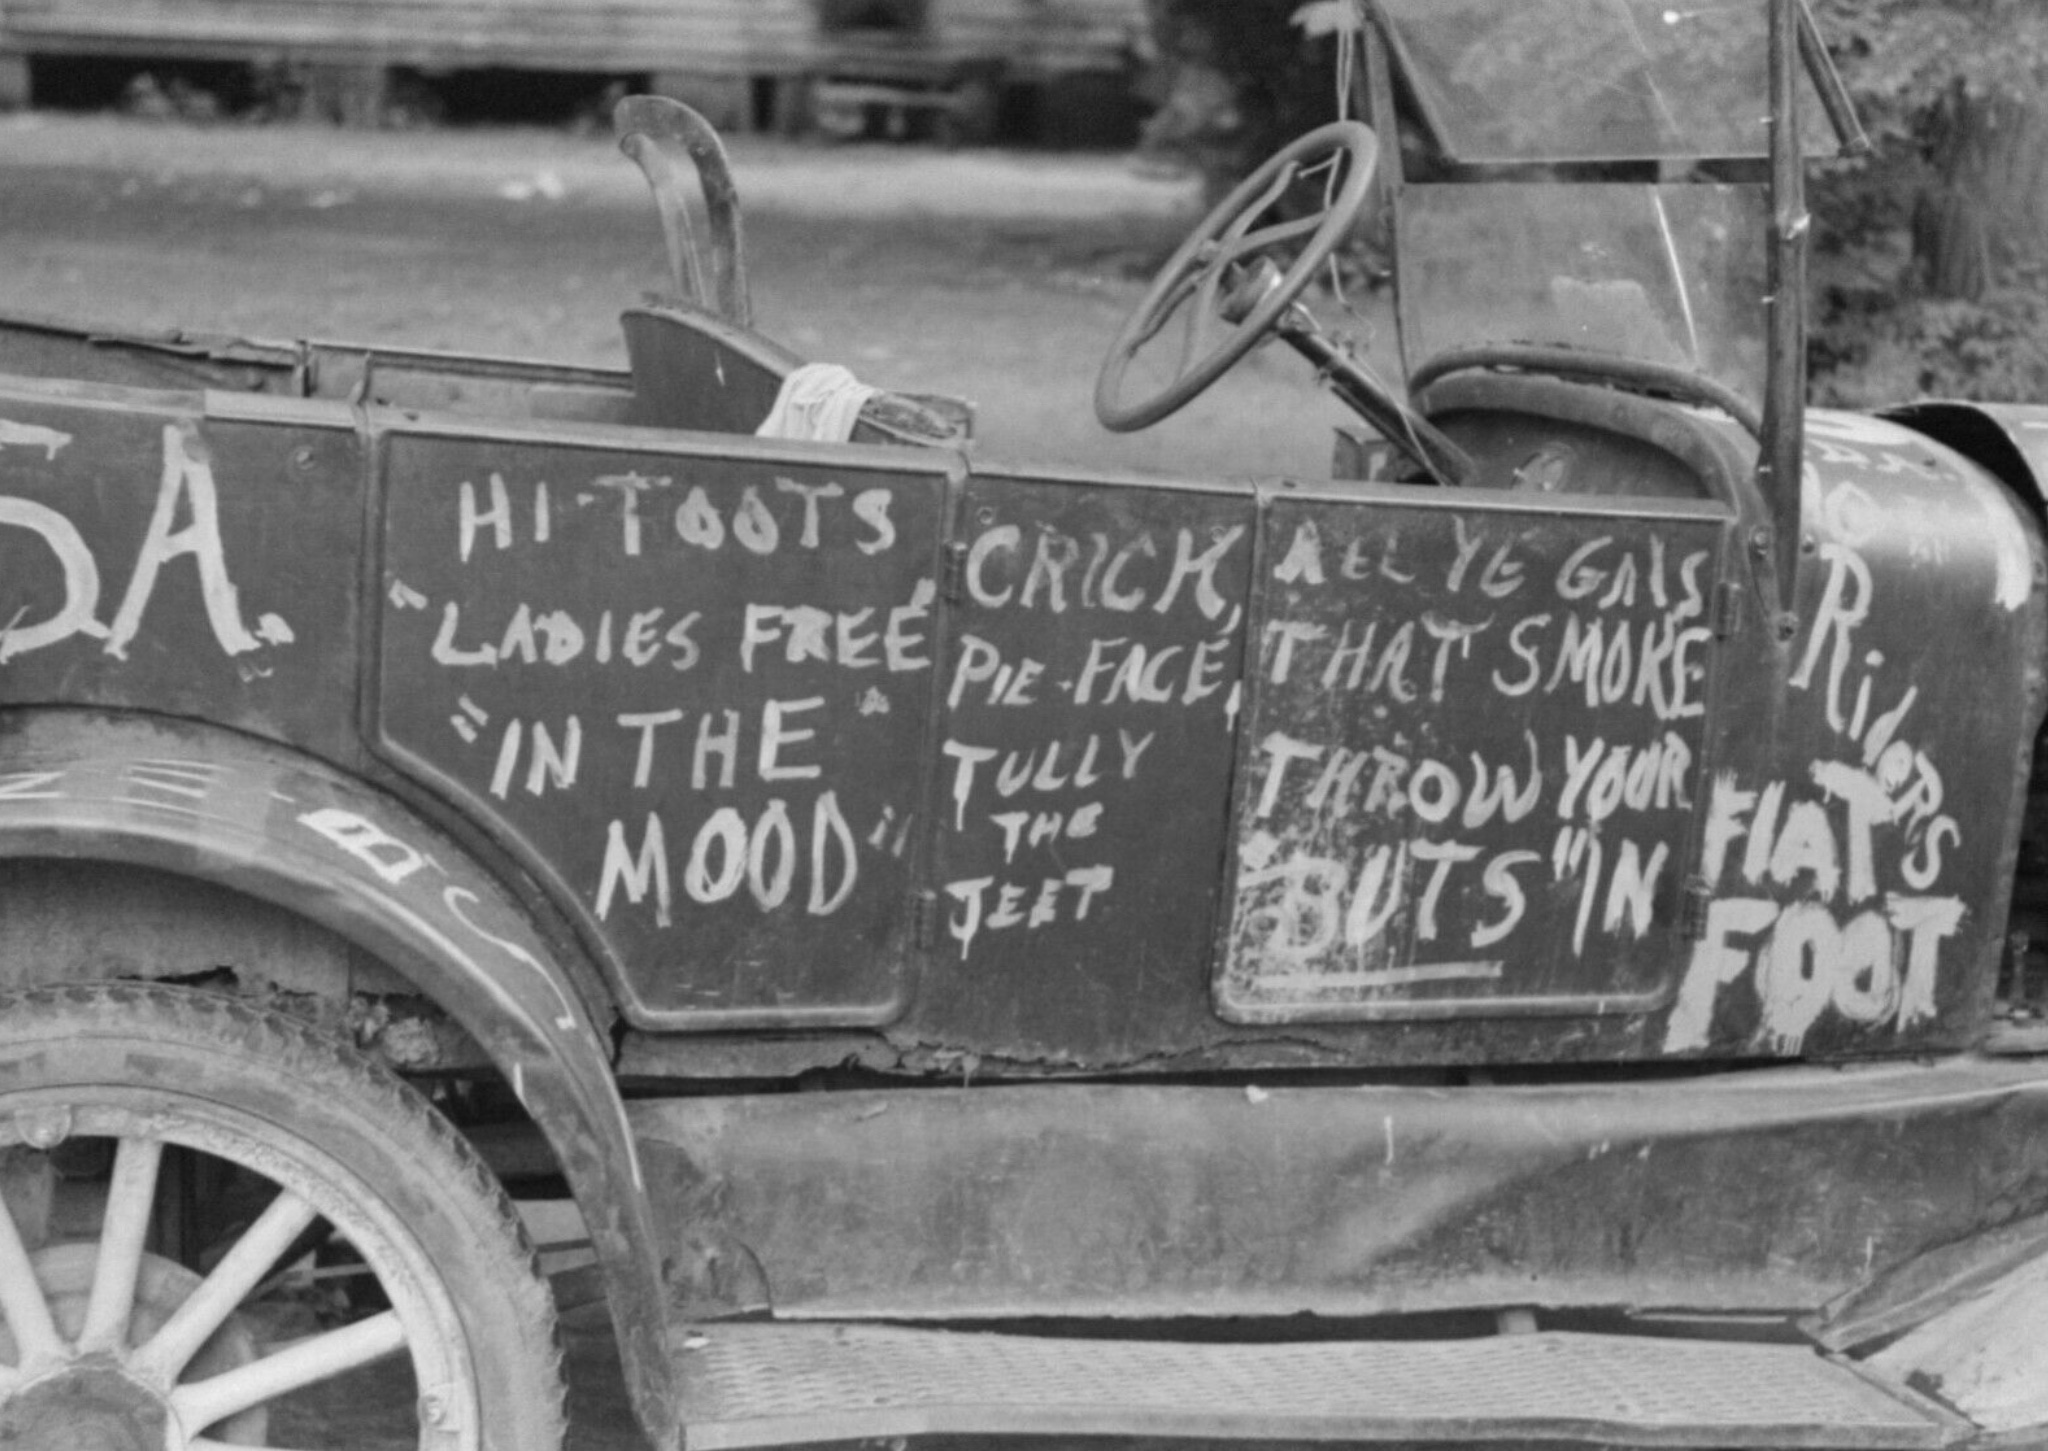 SA.
HI-TOOTS
"LADIES FREE,"
"IN THE
MOOD"
CRICK,
PIE-FACE,
TULLY
THE
JEET
ALL YE GALS
THAT SMOKE
THROW YOUR
"BUTS" IN
RiDeRS
FLAT
FOOT